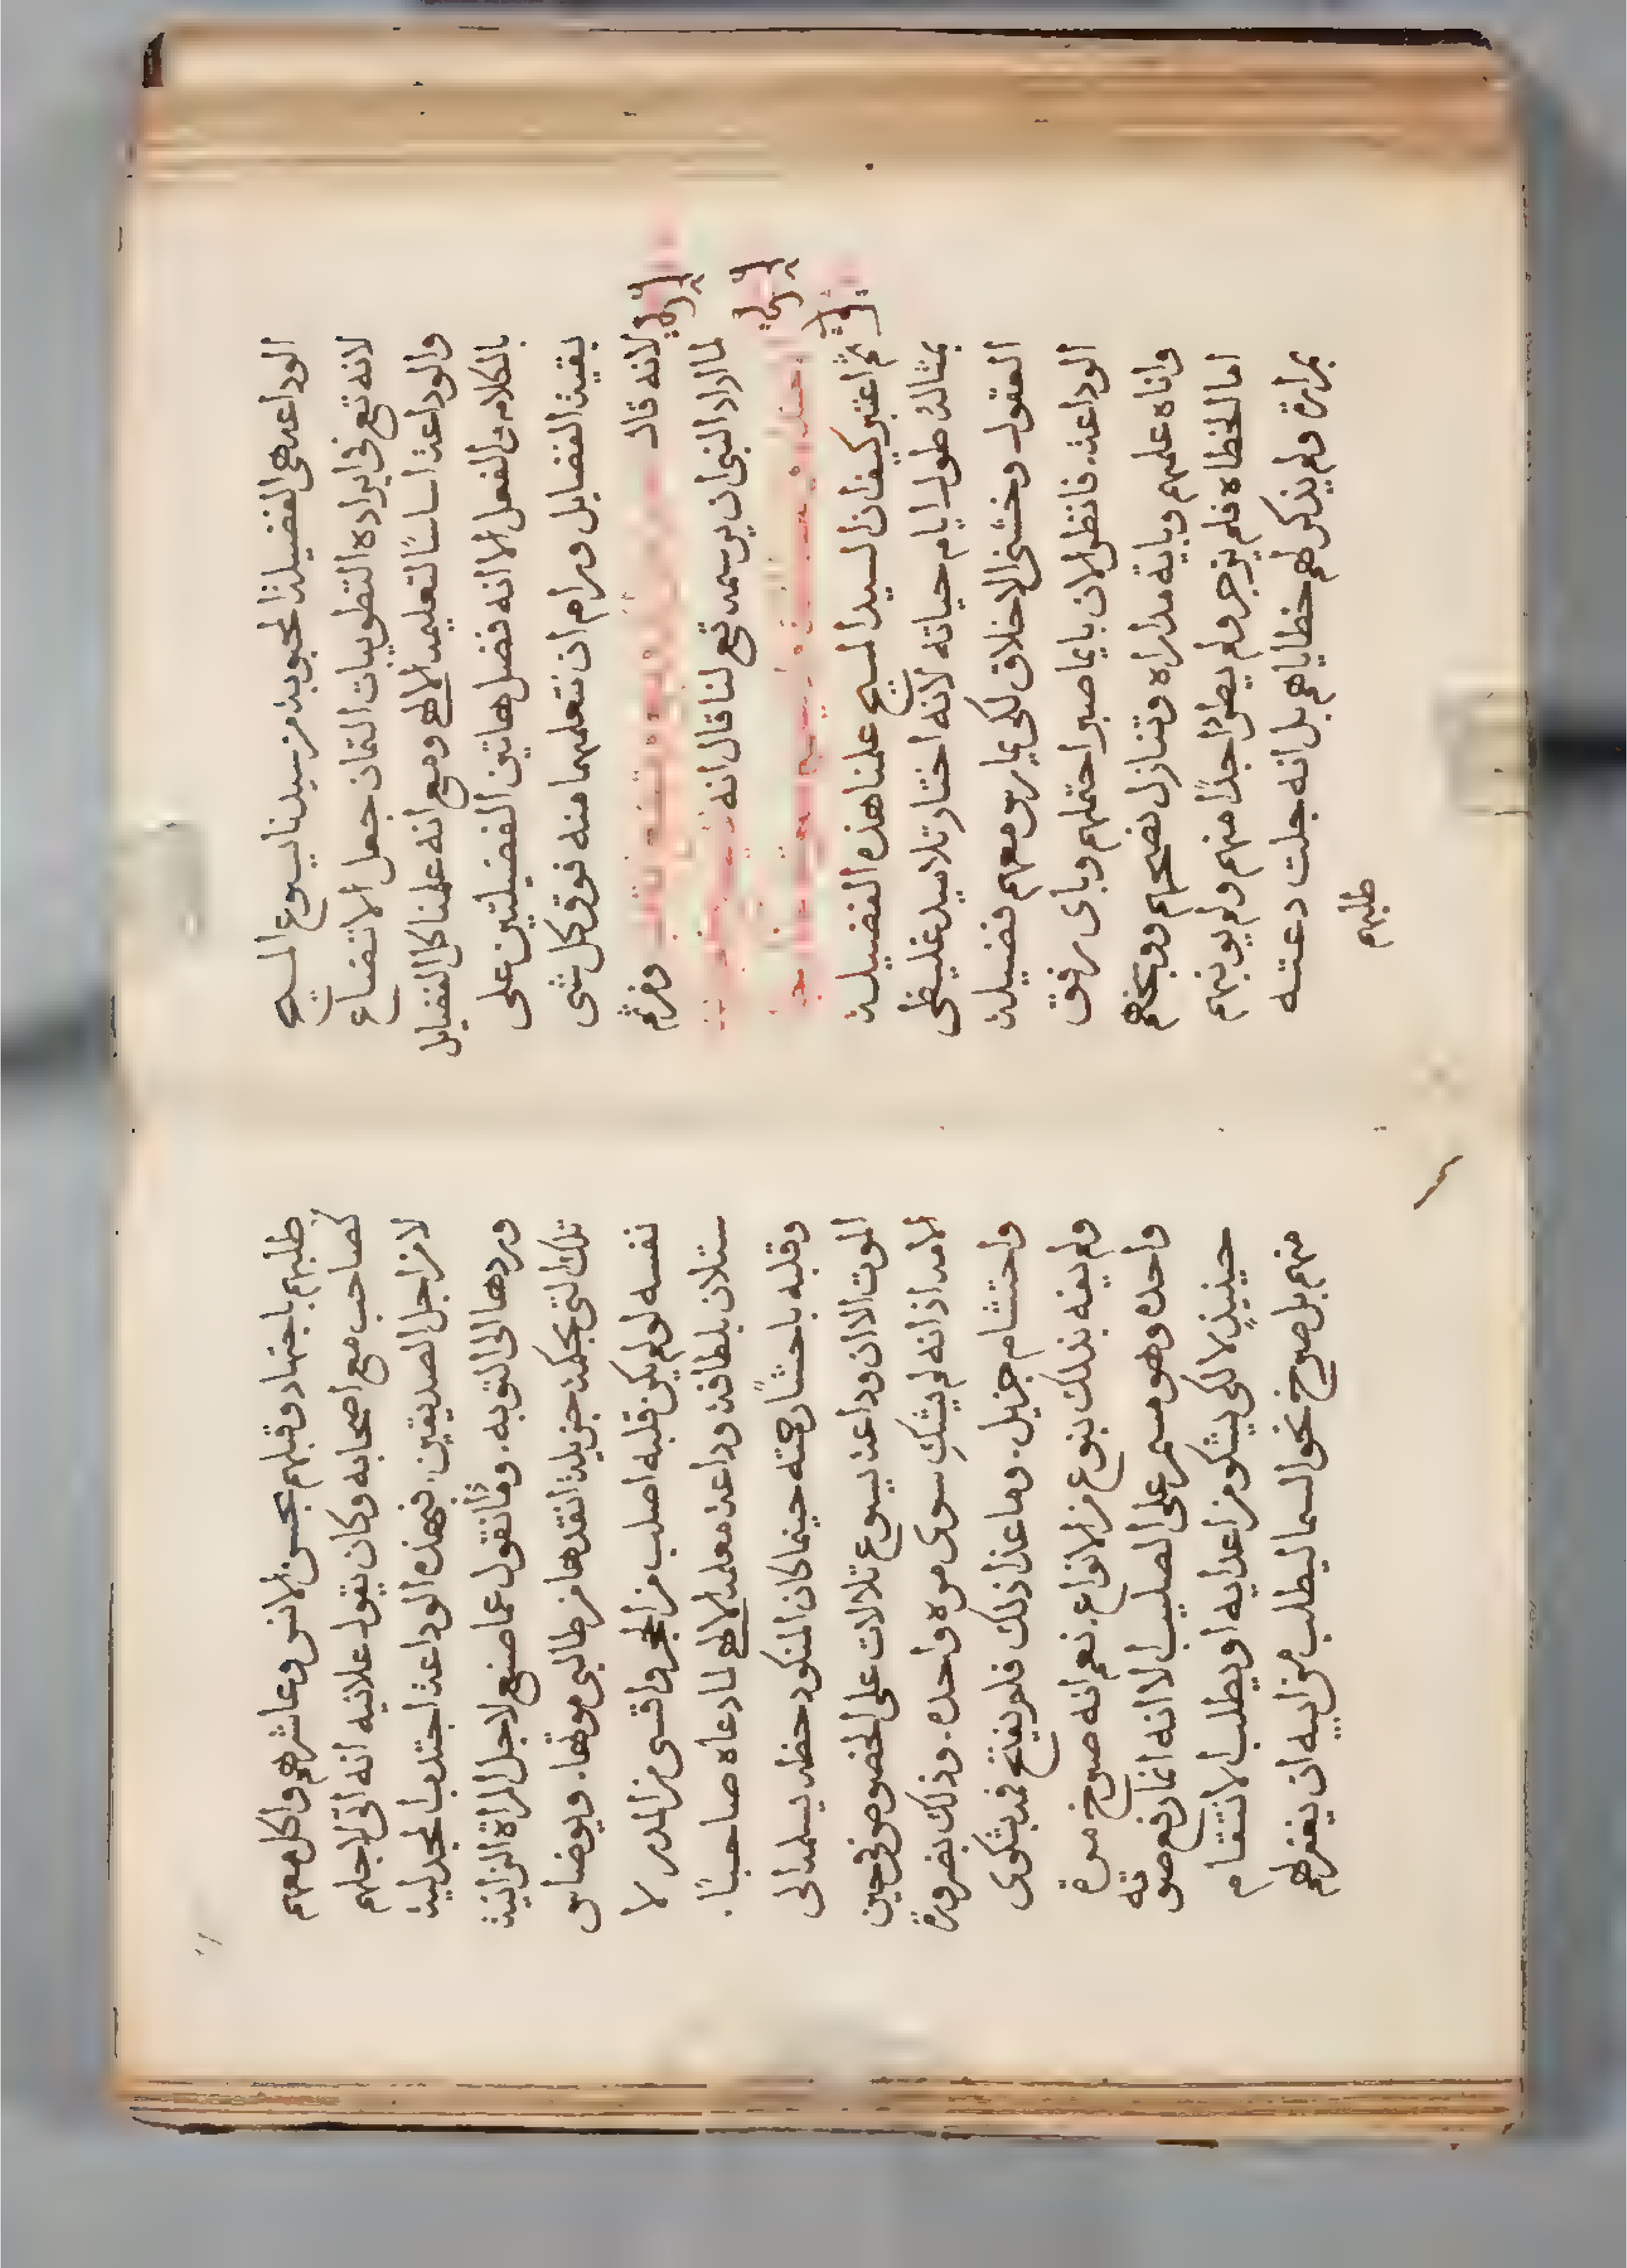 الوداعه هى الفضيلة المحبوبه من سيدنا يسوع المسيح
لانه تع فى ايراده التطويبات الثمان جعل الاتضاع
والوداعة اساسًا لتعليمه الالهى ومع انه علمنا كل الفضايل
بالكلام والفعل الا انه فضل هاتين الفضيلتين على
بقية الفضايل ورام ان نتعلمهما منه فوق كل شى
لانه قال
ومن ثم
لما اراد النبى ان يرسمه تع لنا قال انه
ثم اعتبر كيف ان السيد المسيح علمنا هذه الفضيلة
بمثاله طول ايام حياته لانه اختار تلاميد غليظى
العقول وخشنى الاخلاق لكى يمارس معهم فضيلة
الوداعة. فانظر الان بايما صبر احتملهم وباى رفق
واناه علمهم وباية مداراه وتنازل نصحهم ووبخهم
اما الخطاه فلم يزجر ولم يطرد احدًا منهم ولم يوبنهم
بمرارة ولم يذكر لهم خطاياهم بل انه جلت دعته
طلبهم
طلبهم باجتهاد وقبلهم بحسن الانس وعاشرهم واكل معهم
كصاحب مع اصحابه وكان يقول علانيه انه اتى لاجلهم
لا من اجل الصديقين. فبهذه الوداعة اجتدب المجدلية
وردها الى التوبه. وماذا نقول عما صنع لاجل المراة الزانية
تلك التى بحكمة جزيلة انقدها من طالبى موتها. ويوضاس
نفسه لو لم يكن قلبه اصلب من الحجر واقسى من المدر لا
ستلان بلطافة وداعة معلمه الالهى لما دعاه صاحبًا.
وقلبه باحشا رحمته حينما كان المنكود حظه يسلمه الى
الموت الا ان وداعة يسوع تلالات على الخصوص فى حين
الامه اذ انه لم يشك سوى مره واحده. وذلك بضرورة
واحتشام جزيل. وما عدا ذلك فلم يفتح فمه بشكوى
ولم يفه بذلك بنوع من الانواع. نعم انه صرخ مرة
واحده وهو مسمر على الصليب الا انه انما رفع صوته
حينيذٍ لا لكى يشكو من اعدايه او يطلب الانتقام
منهم بل صرخ نحو السما ليطلب من ابيه ان يغفر لهم